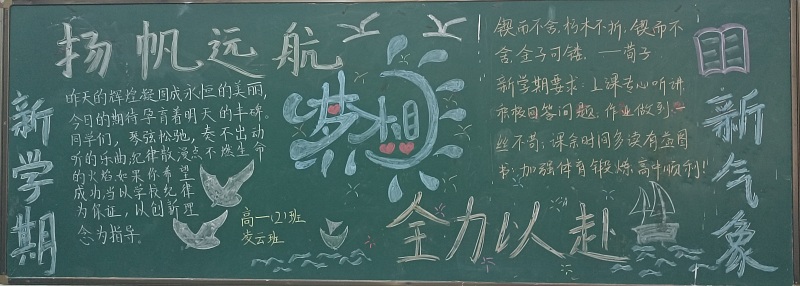 扬帆远航
新学期
昨天的辉煌凝固成永恒的美丽,
今日的期待孕育着明天的丰碑。
同学们,琴弦松驰,奏不出动
听的乐曲,纪律散漫点不燃生命
的火焰,如果你希望
成功,当以学校纪律
为保证,以创新理
念为指导。
高一(2)班
凌云班
梦想
全力以赴
锲而不舍,朽木不折,锲而不
舍,金子可镂。——荀子
新学期要求:上课专心听讲
积极回答问题,作业做到一
丝不苟;课余时间多读有益图
书;加强体育锻炼,高中顺利!!
新气象